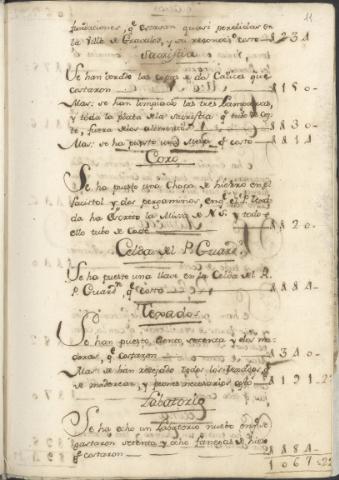 11
fundaciones, q̃ estaban quasi perdidas en
la Villa de Grajales, y su reconoc.º costo — 1 2 3 4
Sacristia
Se han dorado las copas de dos Calices que
costaron — 1 1 5 0 -
Mas: se han limpiado las tres Lamparas,
y toda la plata de la Sacristia q̃ tubo de cos-
te, fuera de los alimentos — 1 8 3 0 -
Mas: se ha puesto una Mesa q̃ costo — 1 8 1 4
Coro
Se ha puesto una Chapa de hierro en el
facistol y dos pergaminos, en q̃ el P.
da ha escrito la Missa de N. S. y todo
ello tubo de coste — 1 1 2 0 -
Celda del P. Guard.n
Se ha puesto una llave en la Celda del R.
P. Guard.n q̃ costo — 1 1 8 4
Texado
Se han puesto, ciento, setenta y dos ma-
deras, q̃ costaron — 1 3 4 0 -
Mas: se han retejado todos los texados, q̃
se maderear, y peones necesarios costo — 1 1 9 1 - 2
Labatorio
Se ha echo un Labatorio nuebo en q̃ se
gastaron setenta y ocho fanegas de hieso
q̃ costaron — 1 1 8 4 -
1 0 6 7 - 22